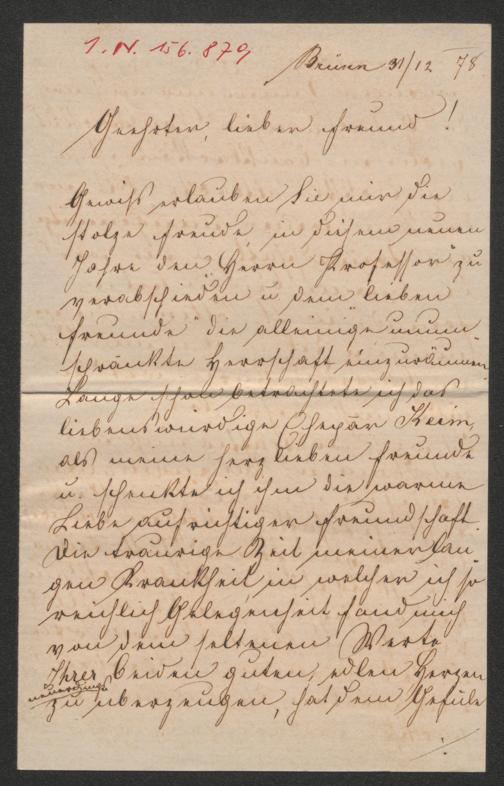 I. N. 156.870
Brünn 31/12 78
Geehrter, lieber Freund!
Gewiß erlauben Sie mir die
stolze Freude, in diesem neuen
Jahre den "Herrn Professor" zu
verabschieden u dem "lieben
Freunde" die alleinige unum
schränkte Herrschaft einzuräumen.
Lange schon betrachtete ich das
liebenswürdige Ehepar Keim,
als meine herzlieben Freunde
u. schenkte ich ihm die warme
Liebe aufrichtiger Freundschaft.
Die traurige Zeit meiner lan
gen Krankheit in welcher ich so
reichlich Gelegenheit fand mich
von dem seltenen Werte
Ihrer beiden guten, edlen Herzen
neuerdings
zu überzeugen, hat dem Gefüle